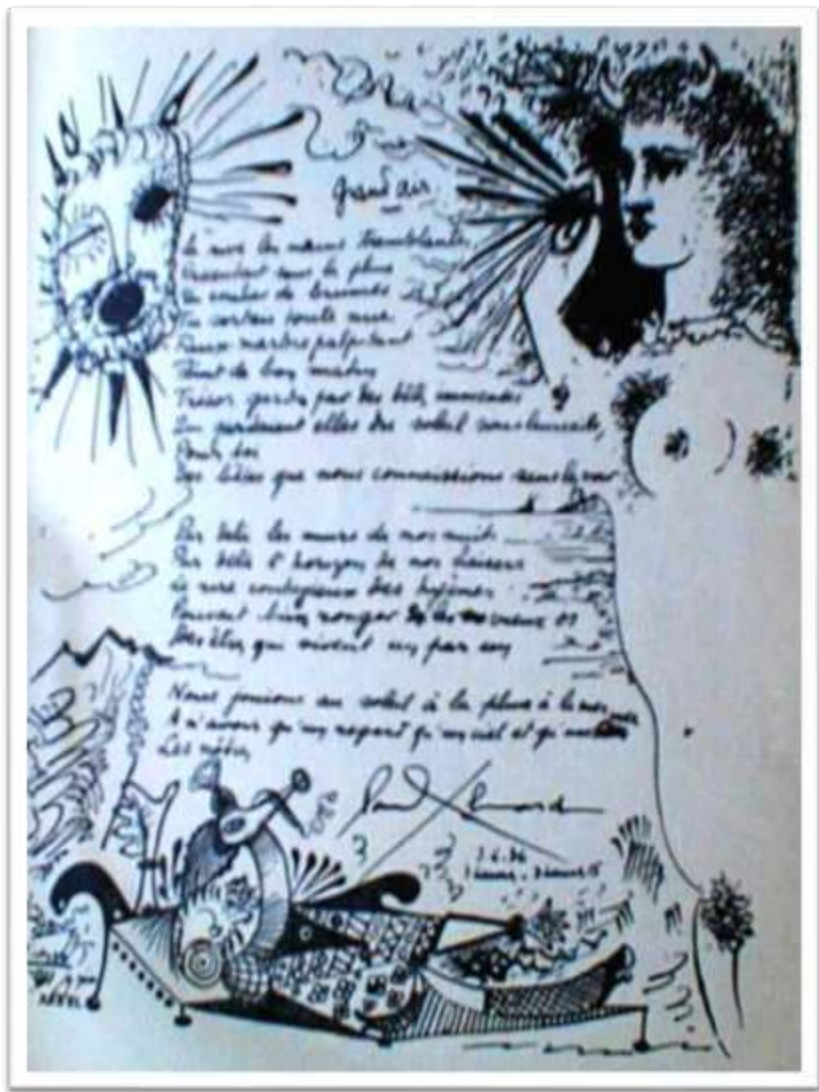 grand air
La rive les mains tremblantes
Descendait sous la pluie
Un escalier de brumes
Tu sortais toute nue
Faux marbre palpitant
Teint de bon matin
Trésor gardé par des bêtes immenses
Qui gardaient elles du soleil sous leurs ailes,
Pour toi
Des bêtes que nous connaissions sans les voir
Par delà les murs de nos nuits
Par delà l'horizon de nos baisers
Le rire contagieux des hyènes
Pouvait bien ronger les vieux os
Des êtres qui vivent un par un
Nous jouions au soleil à la pluie à la mer
A n'avoir qu'un regard qu'un ciel et qu'une mer
Les nôtres
Paul Eluard